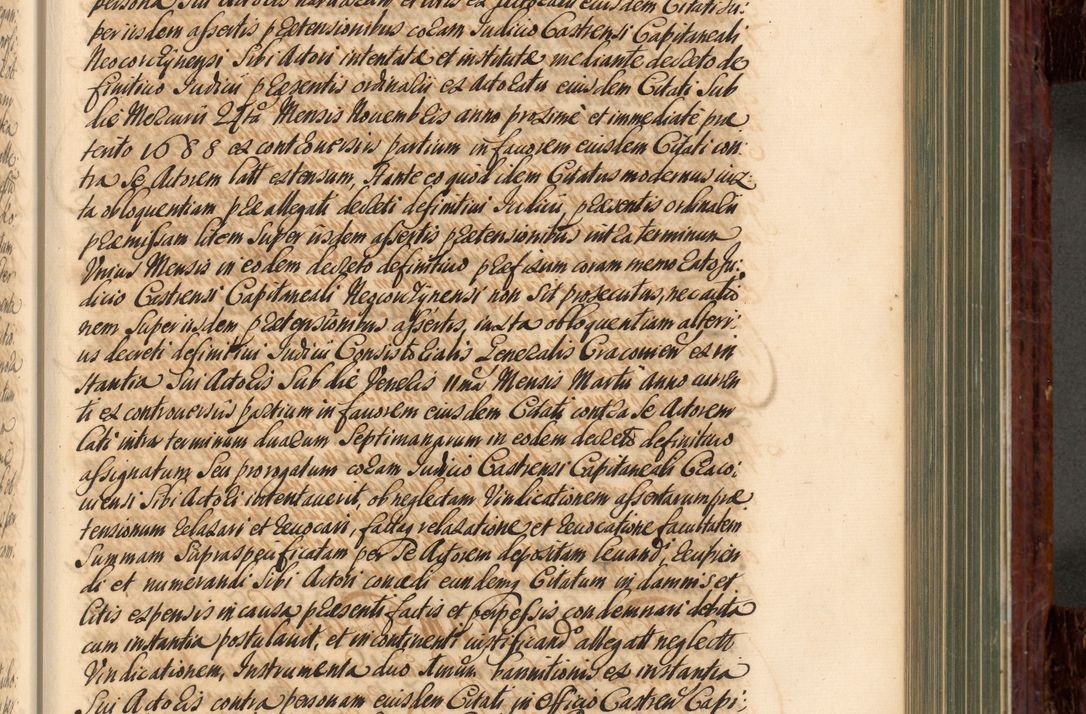 per iisdem assertis praetensionibus coram Judicio Castrensi Capitaneali
Neocorcÿnensi Sibi Actori intentatae et institutae mediante decreto de
finitivo Judicii praesentis ordinarii ex Actoratu eiusdem Citati Sub
die Mercurii 24ta Mensis Novembris anno proxime et immediate prae
terito 1688 ex controversiis partium in favorem eiusdem Citati con
tra Se Actorem latt extensum, Stante eo quod idem Citatus modernus iux
ta obloquentiam praeallegati decreti definitivi Judicii praesentis ordinarii
praemissam litem Super iisdem assertis praetensionibus intra terminum
Unius Mensis in eodem decreto definitivo praefixum coram memorato Ju:
dicio Castrensi Capitaneali Neocorcÿnensi non Sit prosecutus, nec actio
nem Super iisdem praetensionibus assertis, iuxta obloquentiam alteri:
us decreti definitivi Judicii Consistorialis Generalis Cracovien ex in
stantia Sui Actoris Sub die Veneris 11ma Mensis Martii Anno curren
ti ex controversiis partium in favorem eiusdem Citati contra Se Actorem
lati intra terminum duarum Septimanarum in eodem decreto definitivo
assignatum Seu prorogatum coram Judicio Castrensi Capitaneali Craco:
viensi Sibi Actori intentaverit, ob neglectam Vindicationem assertarum prae
tensionum relaxari et revocari, factaq relaxatione et revocatione facultatem
Summam Supraspecificatam per Se Actorem depositam levandi, recipien
di et numerandi Sibi Actori concedi eundemq Citatum in damnis et
litis expensis in causa praesenti factis et perpessis condemnari debita
cum instantia postulavit, et in continenti iustificando allegatt neglectt
Vindicationem, Instrumenta duo Annum bannitionis ex instantia
Sui Actoris contra personam eiusdem Citati in officio Castren Capi: